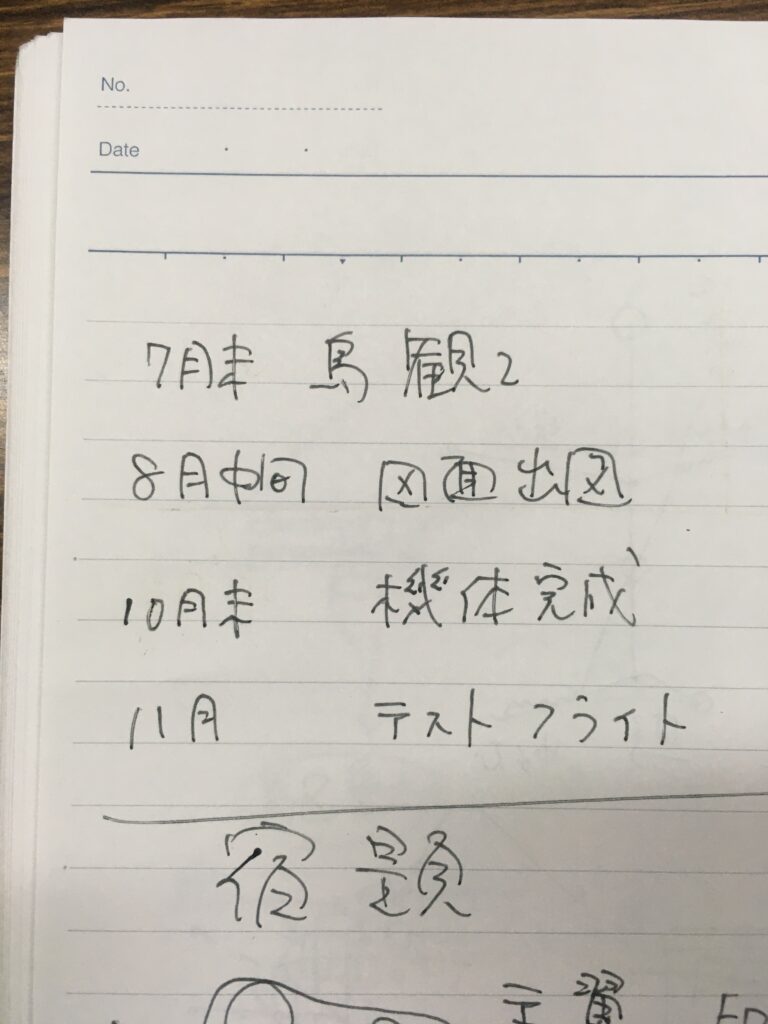 No.
Date
7月末 鳥観2
8月中旬 図面出図
10月末 機体完成
11月 テストフライト
宿題
主翼